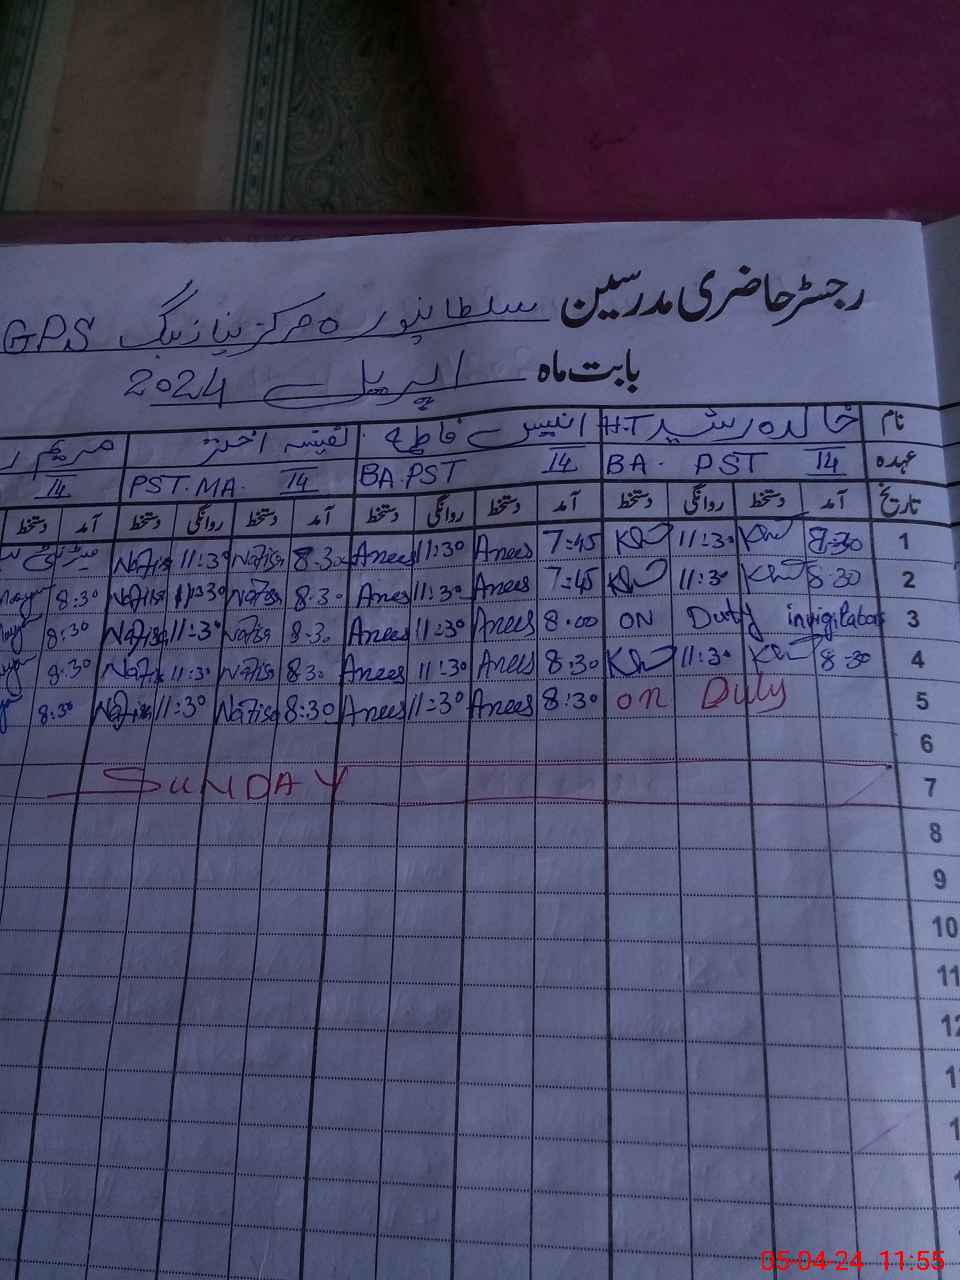 رجسٹر حاضری مدرسین سلطانپورہ مرکز نیاز بیگ GPS
بابت ماہ اپریل 2024
نام خالدہ رشید H.T انیس فاطمہ نفیسہ اختر مریم
عہدہ 14 BA. PST 14 BA.PST 14 PST.MA. 14
تاریخ آمد دستخط روانگی دستخط آمد دستخط روانگی دستخط آمد دستخط روانگی دستخط آمد دستخط
1 8:30 Kh 11:30 Kh 7:45 Anees 11:30 Anees 8.30 Nafisa 11:30 Nafisa
2 8.30 Kh 11:30 Kh 7:45 Anees 11:30 Anees 8.30 Nafisa 11:30 Nafisa 8.30
3 ON Duty invigilator 8.00 Anees 11:30 Anees 8.30 Nafisa 11:30 Nafisa 8.30
4 8.30 Kh 11:30 Kh 8:30 Anees 11:30 Anees 8.30 Nafisa 11:30 Nafisa 8.30
5 on Duty 8:30 Anees 11:30 Anees 8:30 Nafisa 11:30 Nafisa 8:30
6
7 SUNDAY
8
9
10
11
05-04-24 11:55